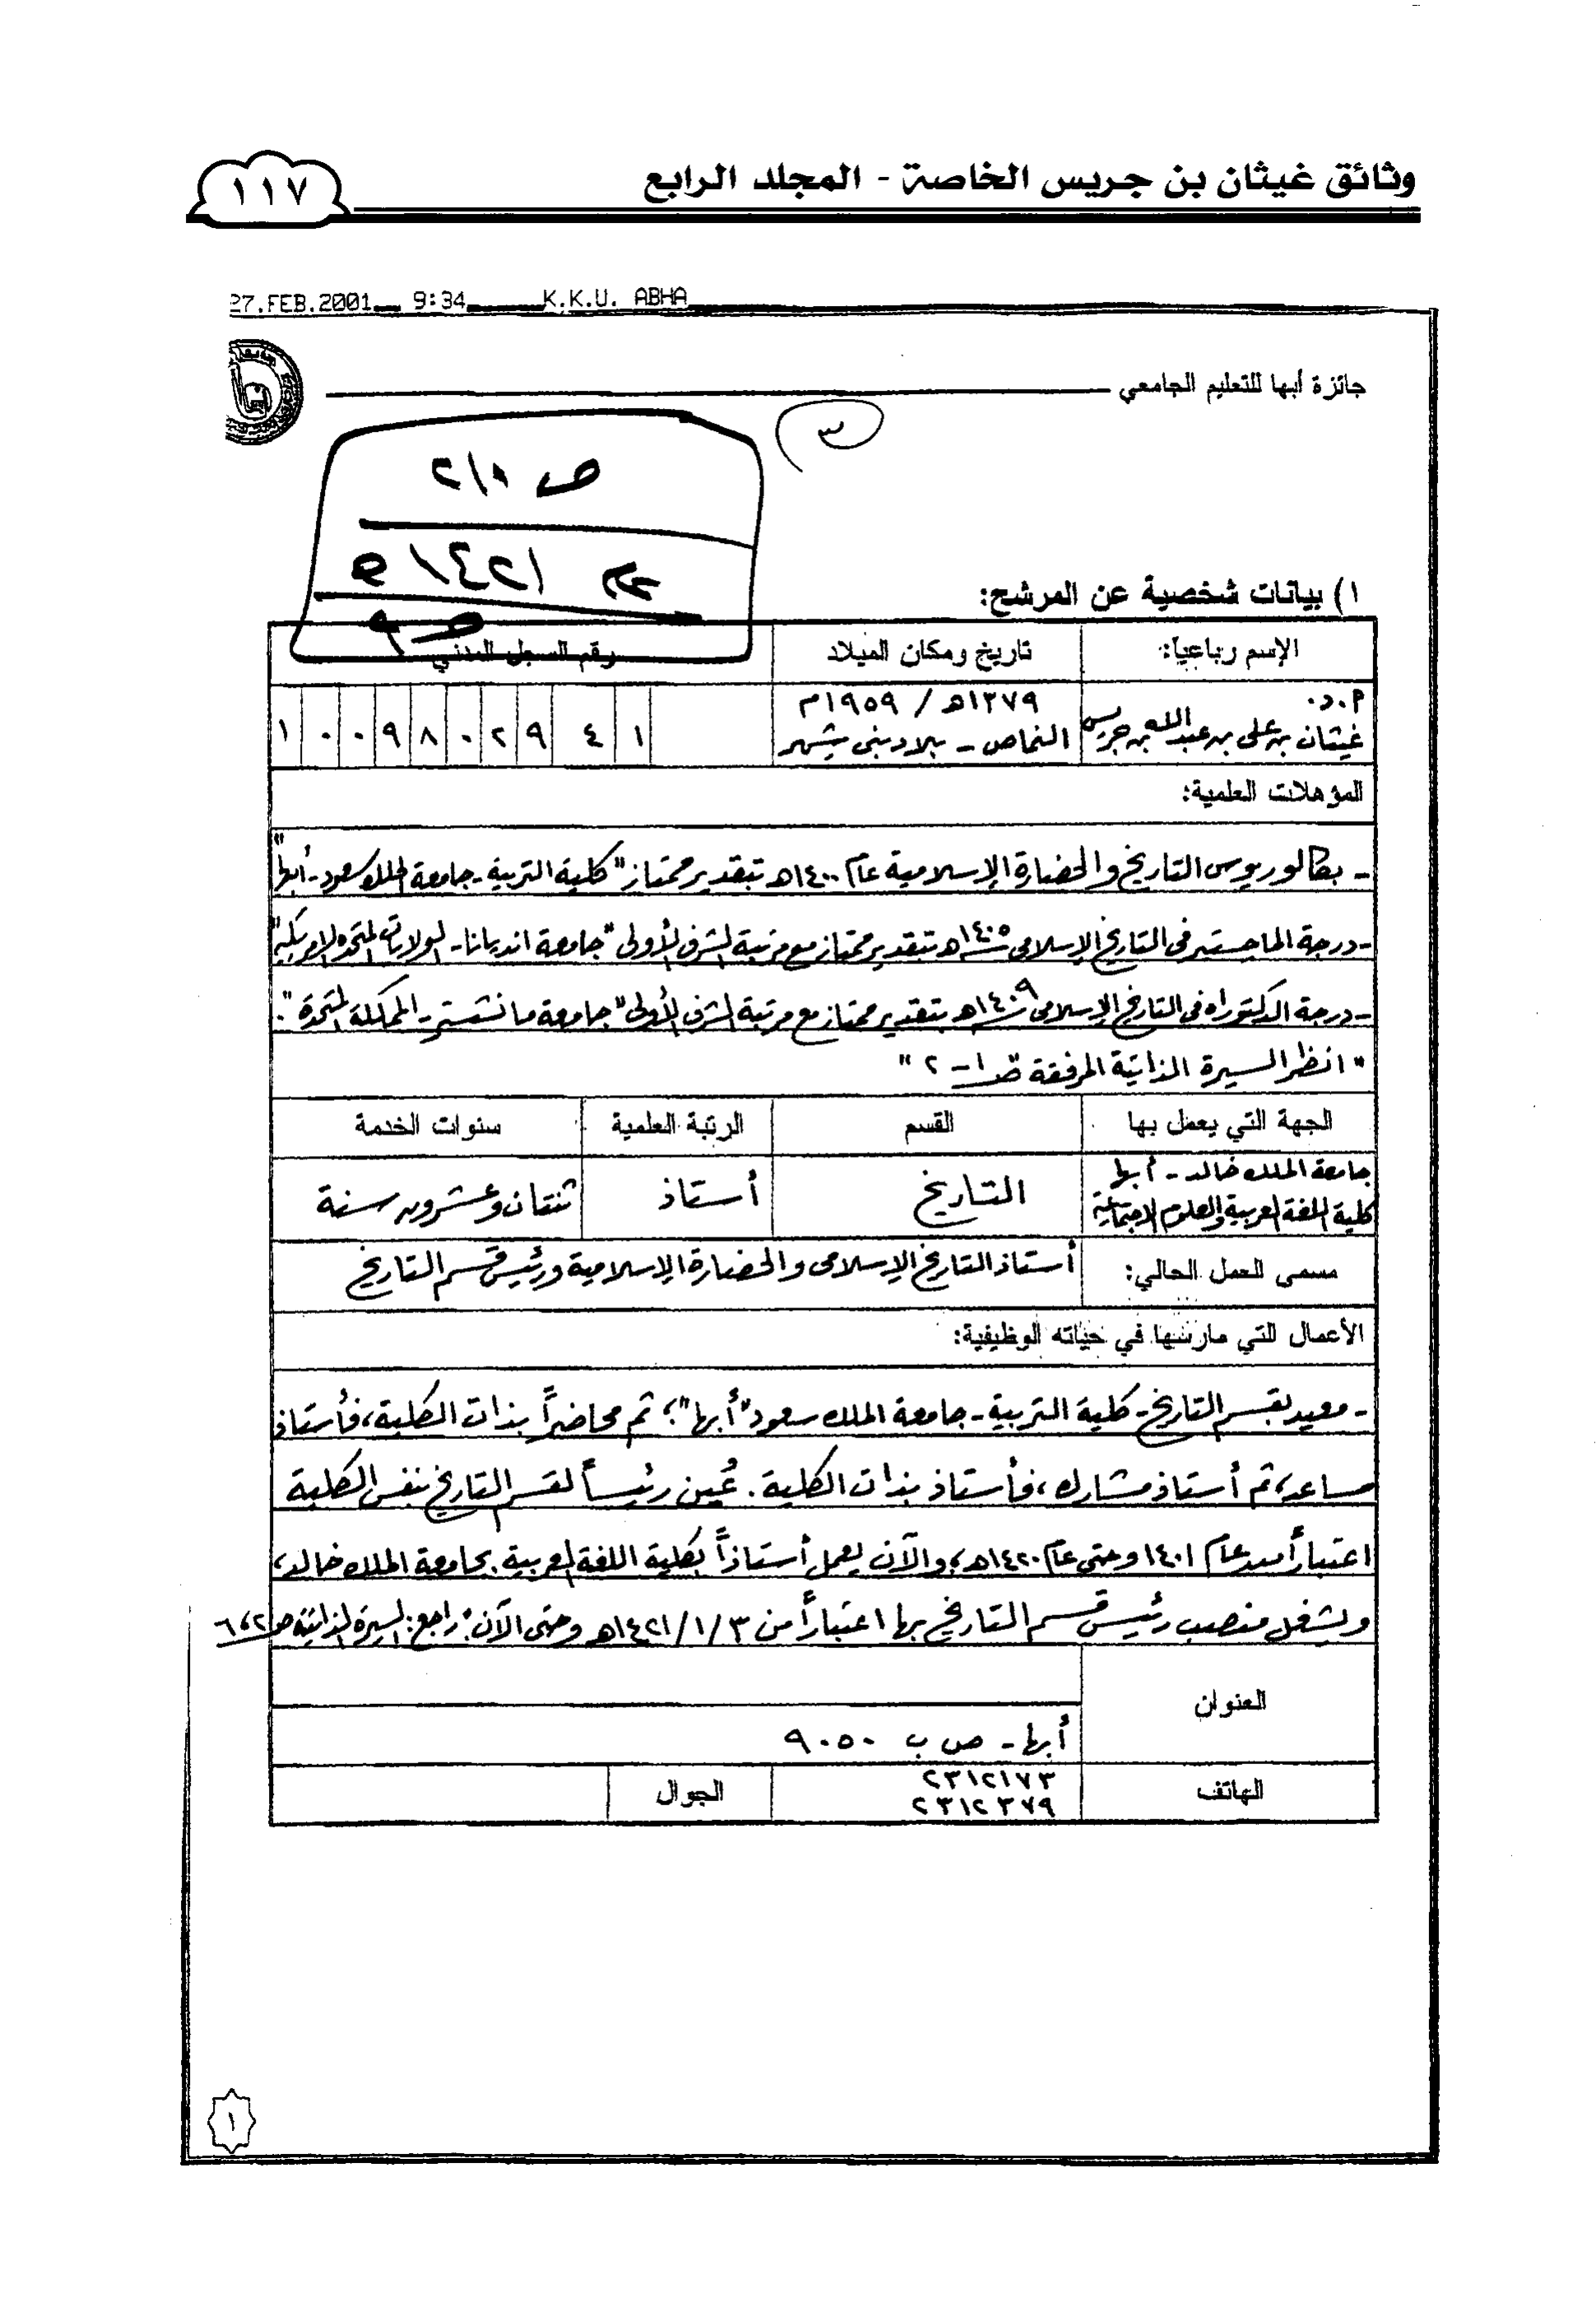 وثائق غيثان بن جريس الخاصة - المجلد الرابع
١١٧
27.FEB.2001 9:34 K.K.U. ABHA
جائزة أبها للتعليم الجامعي
٣
ص ٢/٠
١٤٢١ هـ
١) بيانات شخصية عن المرشح:
الإسم رباعياً: تاريخ ومكان الميلاد رقم السجل المدني
أ.د. ١٣٧٩هـ / ١٩٥٩م
غيثان بن علي بن عبدالله بن جريس النماص - بلاد بني شهر ١ ٠ ٠ ٩ ٨ ٠ ٢ ٩ ٤ ١
المؤهلات العلمية:
- بكالوريوس التاريخ والحضارة الإسلامية عام ١٤٠٠هـ بتقدير ممتاز "كلية التربية - جامعة الملك سعود - أبها"
- درجة الماجستير في التاريخ الإسلامي ١٤٠٥هـ بتقدير ممتاز مع مرتبة الشرف الأولى "جامعة انديانا - الولايات المتحدة الامريكية"
- درجة الدكتوراه في التاريخ الإسلامي ١٤٠٩هـ بتقدير ممتاز مع مرتبة الشرف الأولى "جامعة مانشستر - المملكة المتحدة".
" انظر السيرة الذاتية المرفقة ص ١ - ٢ "
الجهة التي يعمل بها القسم الرتبة العلمية سنوات الخدمة
جامعة الملك خالد - أبها
كلية اللغة العربية والعلوم الاجتماعية التاريخ أستاذ ثنتان وعشرون سنة
مسمى العمل الحالي: أستاذ التاريخ الإسلامي والحضارة الإسلامية ورئيس قسم التاريخ
الأعمال التي مارسها في حياته الوظيفية:
- معيد بقسم التاريخ - كلية التربية - جامعة الملك سعود "أبها"؛ ثم محاضراً بذات الكلية، فأستاذ
مساعد، ثم أستاذ مشارك، فأستاذ بذات الكلية. عُين رئيساً لقسم التاريخ بنفس الكلية
اعتباراً من عام ١٤٠١ وحتى عام ١٤٢٠هـ، والآن يعمل أستاذاً بكلية اللغة العربية بجامعة الملك خالد،
ويشغل منصب رئيس قسم التاريخ بها اعتباراً من ١٤٢١/١/٣هـ وحتى الآن. راجع: السيرة الذاتية ص ٢، ٦
العنوان
أبها - ص ب ٩٠٥٠
الهاتف ٢٣١٢١٧٣ الجوال
٢٣١٢٣٧٩
١